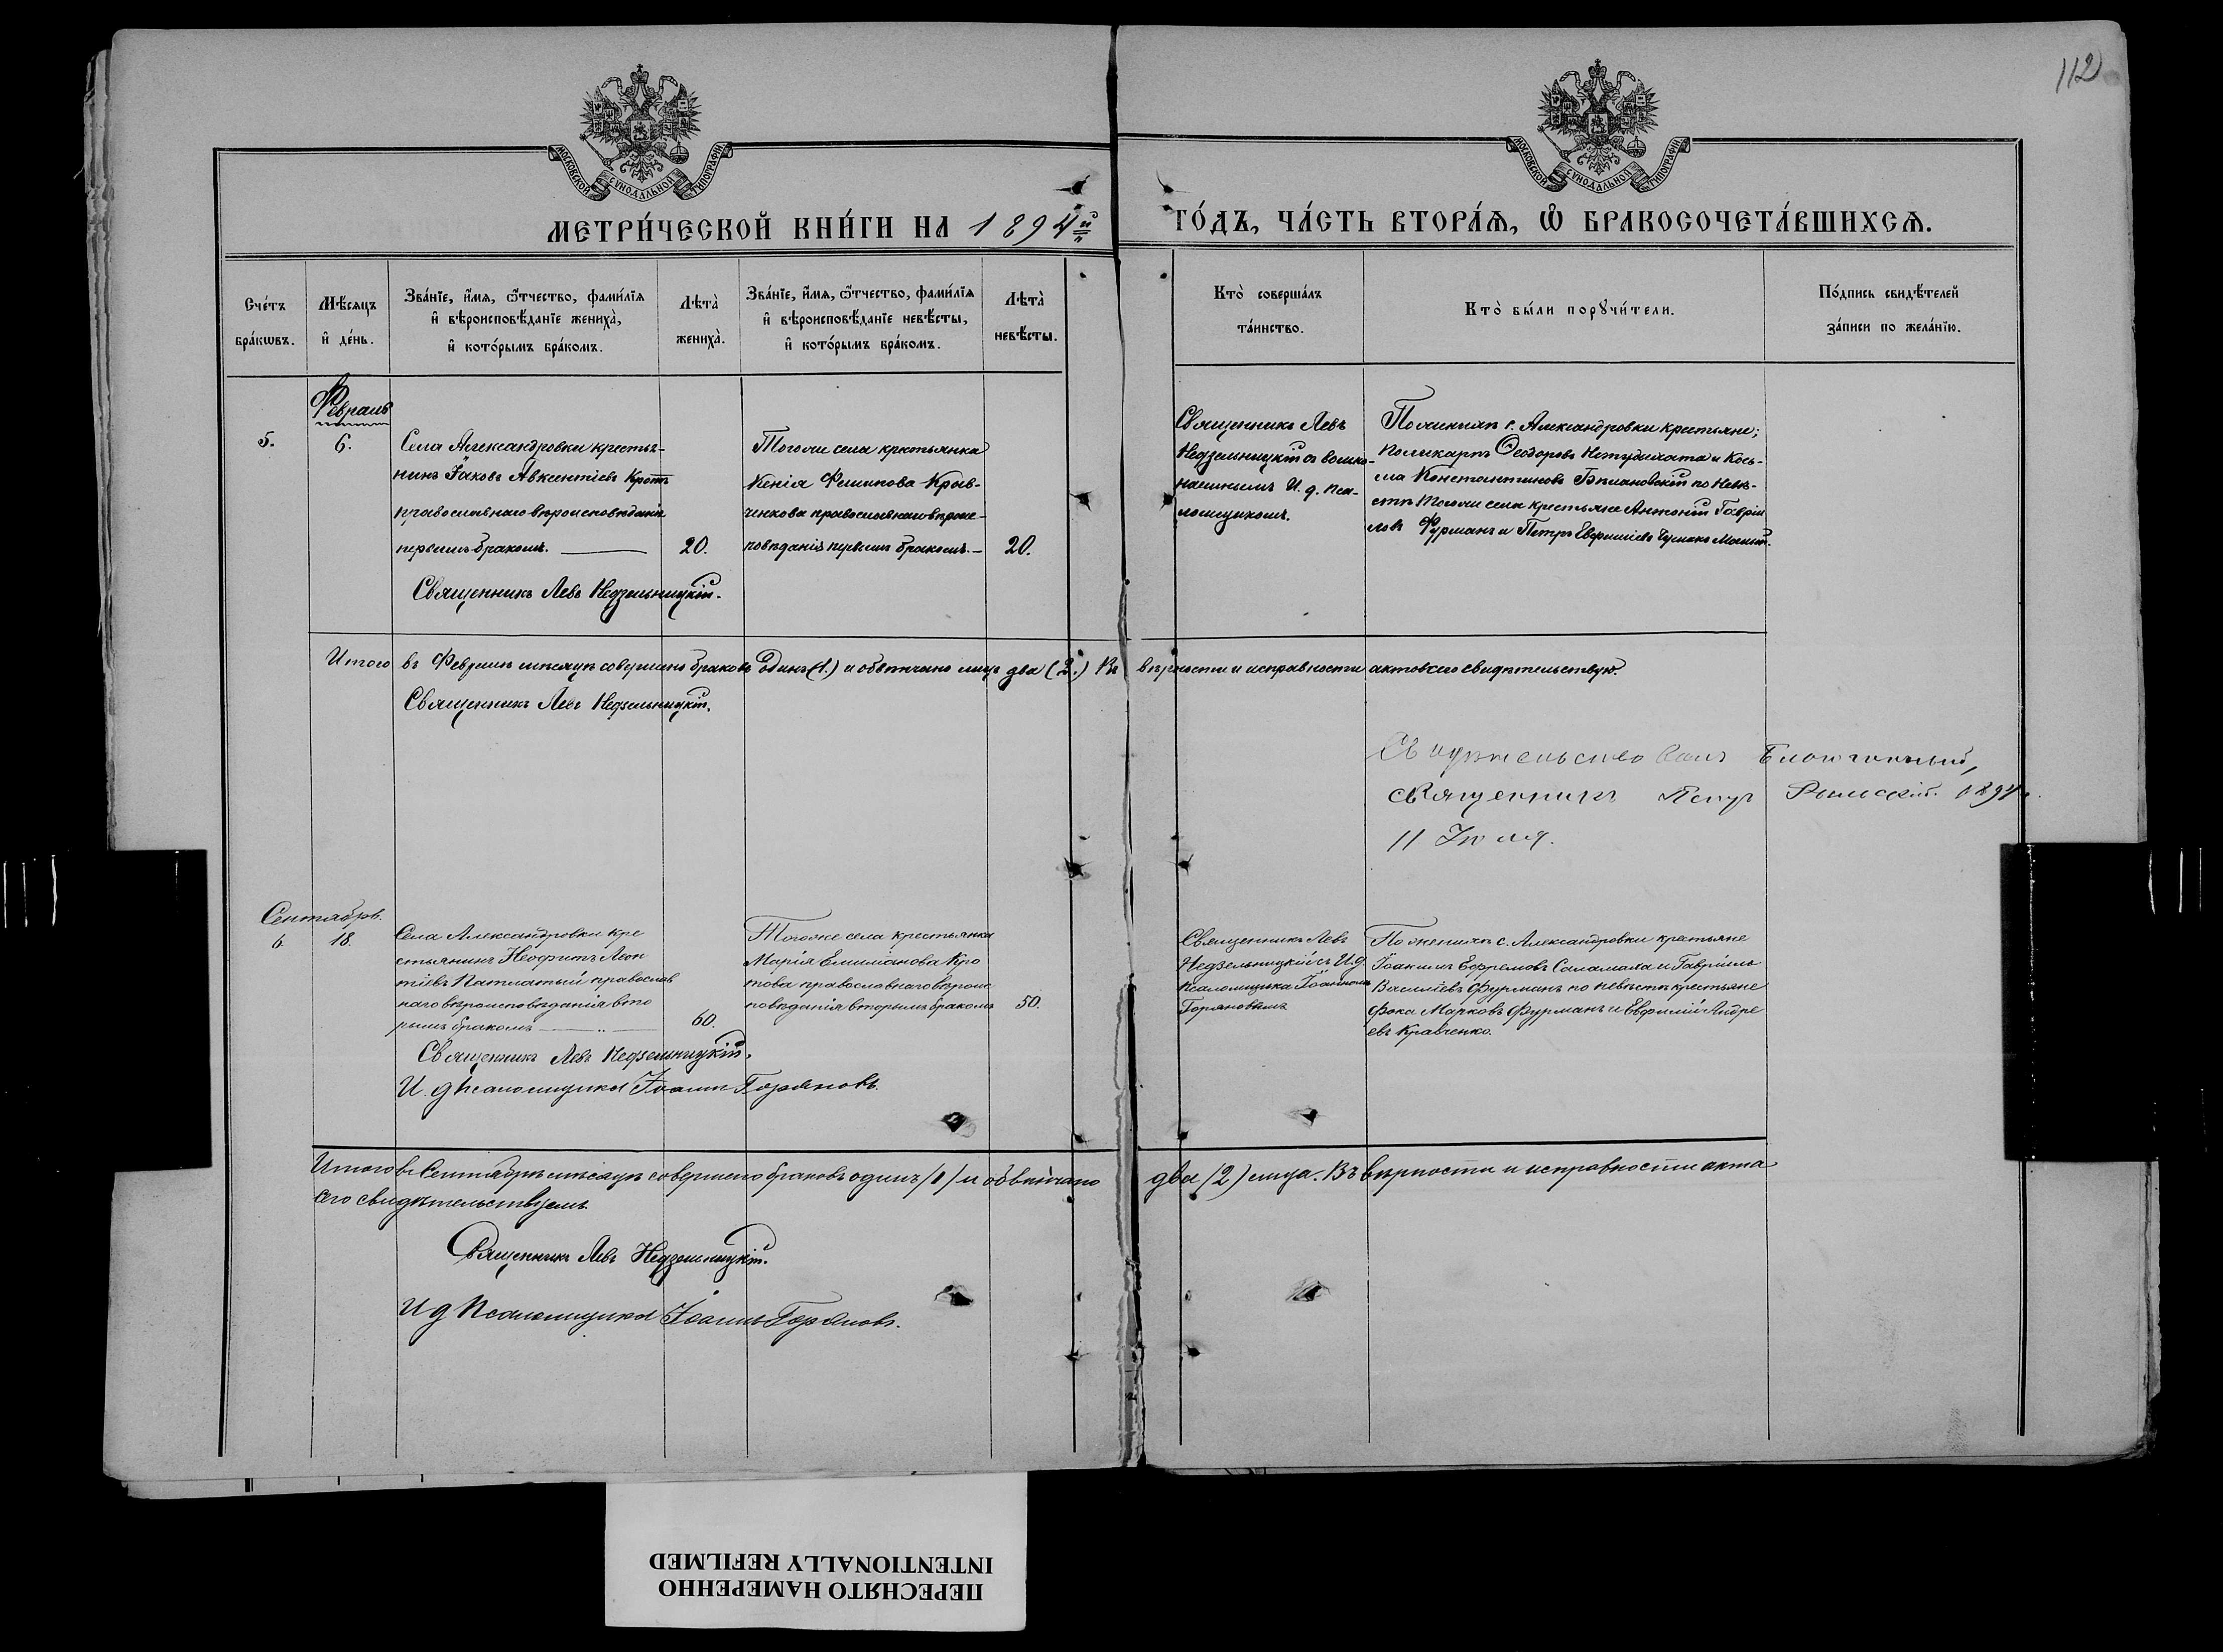 112
МОСКОВСКОЙ СѴНОДАЛЬНОЙ ТИПОГРАФІИ
МОСКОВСКОЙ СѴНОДАЛЬНОЙ ТИПОГРАФІИ
МЕТРИ́ЧЕСКОЙ КНИ́ГИ НА 1894й
ГО́ДЪ, ЧА́СТЬ ВТОРА́Ѧ, Ѡ҆ БРАКОСОЧЕТА́ВШИХСѦ.
Сче́тъ
бра́кѡвъ.
Мѣ́сяцъ
и҆ де́нь.
Зва́нїе, и҆́мѧ, ѻ҆́тчество, фами́лїѧ
и҆ вѣроисповѣ́данїе жениха̀,
и҆ кото́рымъ бра́комъ.
Лѣта̀
жениха̀.
Зва́нїе, и҆́мѧ, ѻ҆́тчество, фами́лїѧ
и҆ вѣроисповѣ́данїе невѣ́сты,
и҆ кото́рымъ бра́комъ.
Лѣта̀
невѣ́сты.
Кто̀ соверша́лъ
та́инство.
Кто̀ бы́ли порꙋчи́тели.
По́дпись свидѣ́телей
за́писи по жела́нїю.
Февраль
5.
6.
Села Александровки кресть-
янинъ Іаковъ Авксентіевъ Кротъ
православнаго вѣроисповѣданія
первымъ бракомъ.
20.
Тогоже села крестьянка
Ксенія Филипова Крав-
ченкова православнаго вѣроис-
повѣданія первымъ бракомъ.
20.
Священникъ Левъ
Недзельницкій съ
И. д. пса-
ломщикомъ.
По женихѣ с. Александровки крестьяне;
Поликарпъ Ѳеодоровъ Нетудихата и Кось-
ма Константиновъ Бѣлановскій по невѣ-
стѣ тогоже села крестьяне Антоній Гаврии
ловъ Фурманъ и Петръ Евфиміевъ
Священникъ Левъ Недзельницкій.
Итого въ Февралѣ мѣсяцѣ совершено браковъ одинъ (1.) и обвѣнчано лицъ два (2.) Въ вѣрности и исправности акта сего свидѣтельствую.
Священникъ Левъ Недзельницкій.
Свидѣтельствовалъ Благочинный,
священникъ Петръ 1894.
11 Іюля.
Сентябрь.
6.
18.
Села Александровки кре
стьянинъ Неофитъ Леон
тіевъ Патлатый православ
наго вѣроисповѣданія вто
рымъ бракомъ
60.
Тогоже села крестьянка
Марія Емиліанова Кро
това православнаго вѣроис
повѣданія вторымъ бракомъ
50.
Священникъ Левъ
Недзельницкій съ И.д.
псаломщика Іоанномъ
Горяновымъ
По женихѣ с. Александровки крестьяне
Іоакимъ Ефремовъ Саламаха и Гавріилъ
Василіевъ Фурманъ по невѣстѣ крестьяне
Фока Марковъ Фурманъ и Евфимій Андре
евъ Кравченко.
Священникъ Левъ Недзельницкій.
И. д псаломщика Іоаннъ Горяновъ.
Итого въ Сентябрѣ мѣсяцѣ совершено браковъ одинъ /1/ и обвѣнчано два /2/ лица. Въ вѣрности и исправности акта
сего свидѣтельствуемъ.
Священникъ Левъ Недзельницкій.
И д Псаломщика Іоаннъ Горяновъ.
ПЕРЕСНЯТО НАМЕРЕННО
INTENTIONALLY REFILMED